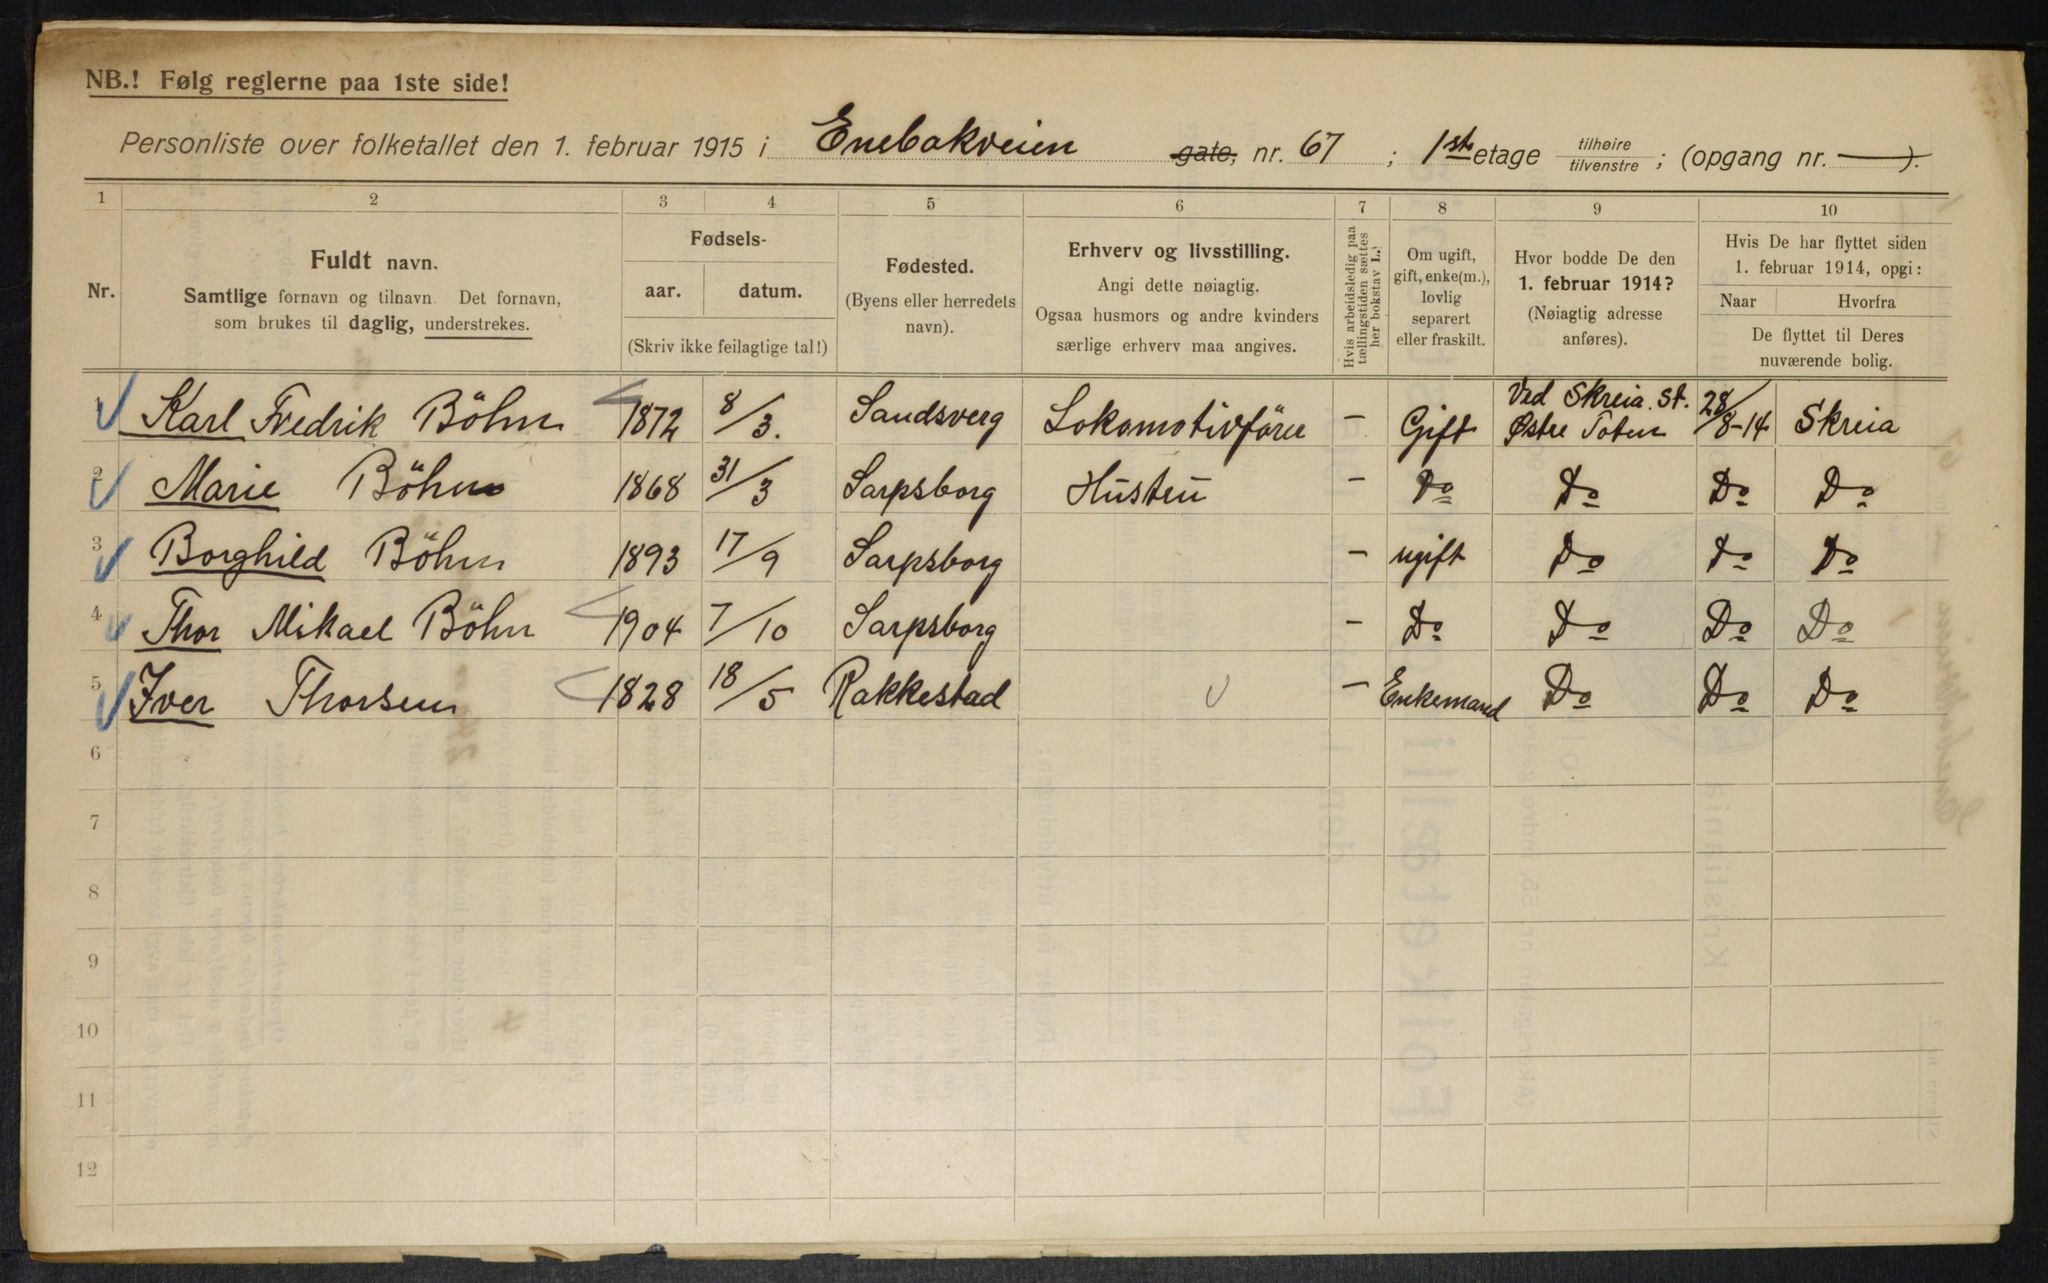 NB.! Følg reglerne paa 1ste side!
Personliste over folketallet den 1. februar 1915 i Enebakveien gate, nr. 67 ; 1ste etage tilhøire / tilvenstre ; (opgang nr. — ).
1 2 3 4 5 6 7 8 9 10
Nr.
Fuldt navn.
Samtlige fornavn og tilnavn. Det fornavn,
som brukes til daglig, understrekes.
Fødsels-
aar. datum.
(Skriv ikke feilagtige tal!)
Fødested.
(Byens eller herredets
navn).
Erhverv og livsstilling.
Angi dette nøiagtig.
Ogsaa husmors og andre kvinders
særlige erhverv maa angives.
Hvis arbeidsledig paa
tællingstiden sættes
her bokstav L.
Om ugift,
gift, enke(m.),
lovlig
separert
eller fraskilt.
Hvor bodde De den
1. februar 1914?
(Nøiagtig adresse
anføres).
Hvis De har flyttet siden
1. februar 1914, opgi:
Naar Hvorfra
De flyttet til Deres
nuværende bolig.
1 Karl Fredrik Böhm 1872 8/3. Sandsverg Lokomotivförer – Gift Ved Skreia St. Østre Toten 28/8-14 Skreia
2 Marie Böhm 1868 31/3 Sarpsborg Hustru – Do Do Do Do
3 Borghild Böhm 1893 17/9 Sarpsborg – ugift Do Do Do
4 Thor Mikael Böhm 1904 7/10 Sarpsborg – Do Do Do Do
5 Iver Thorsen 1828 18/5 Rakkestad – Enkemand Do Do Do
6
7
8
9
10
11
12